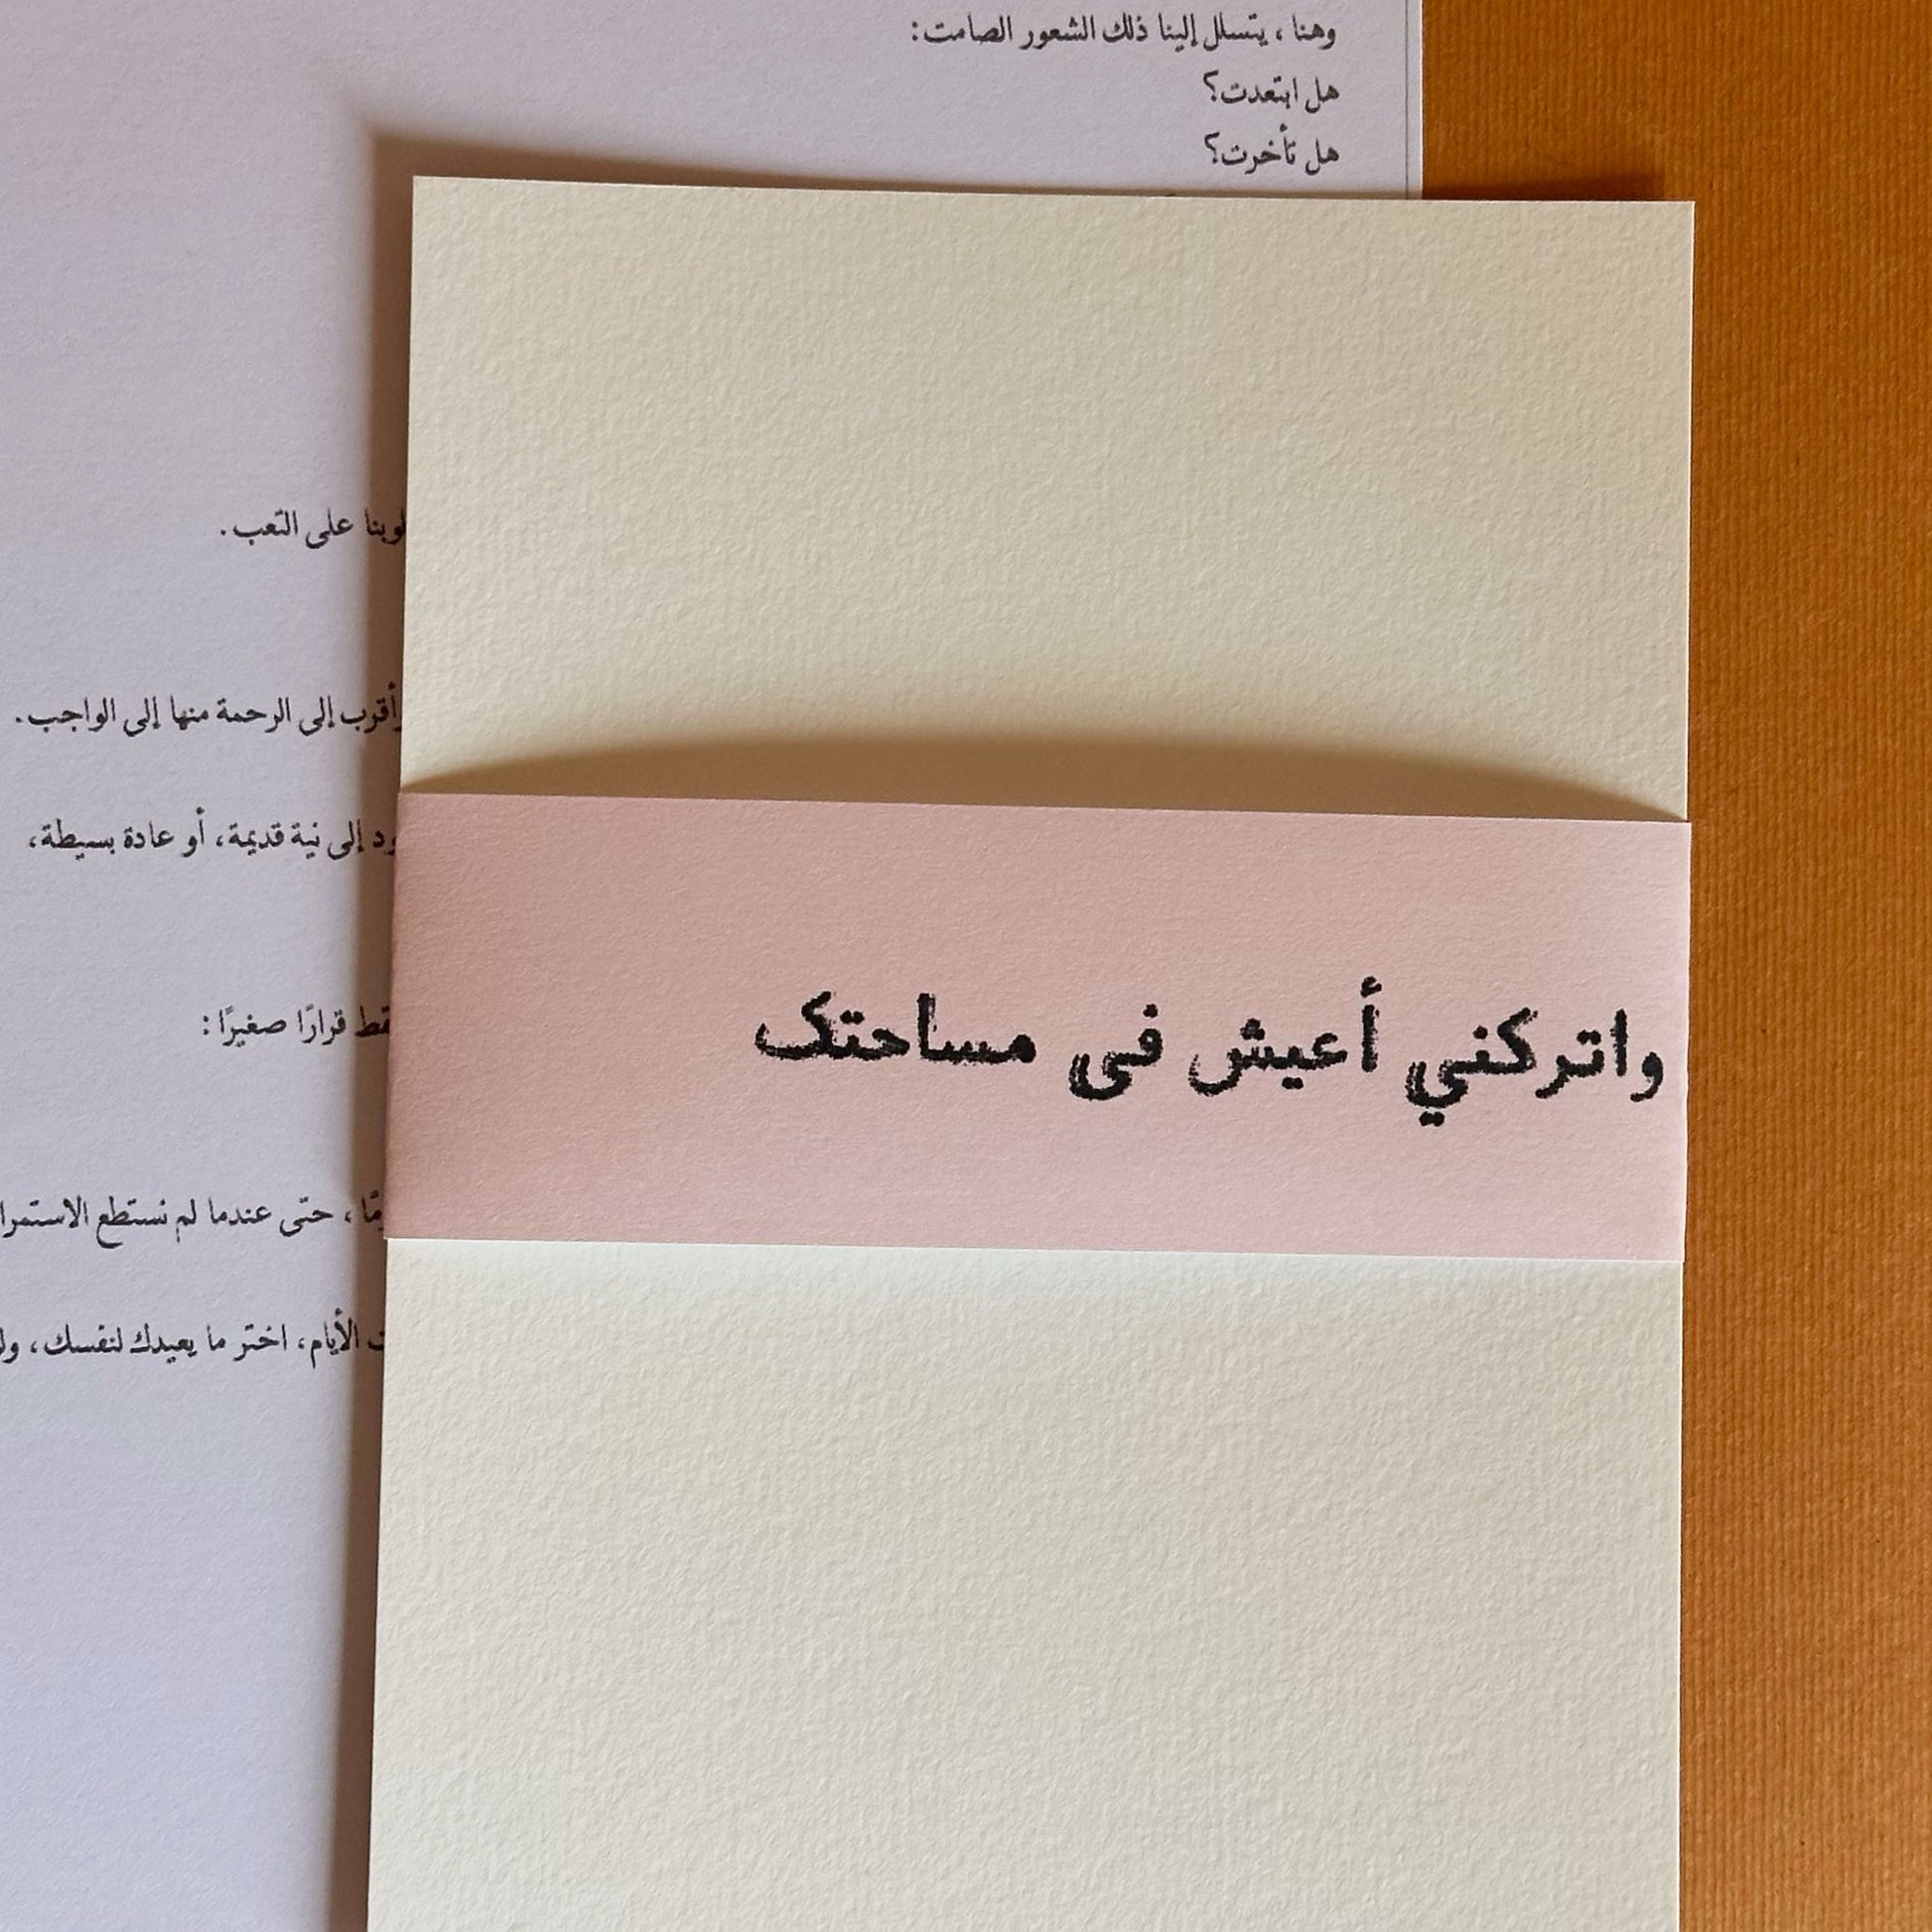 وهنا ، يتسلل إلينا ذلك الشعور الصامت:
هل ابتعدت؟
هل تأخرت؟
على التعب.
وأقرب إلى الرحمة منها إلى الواجب.
إلى نية قديمة، أو عادة بسيطة،
قرارًا صغيرًا:
، حتى عندما لم نستطع
الأيام، اختر ما يعيدك لنفسك،
واتركني أعيش فى مساحتک